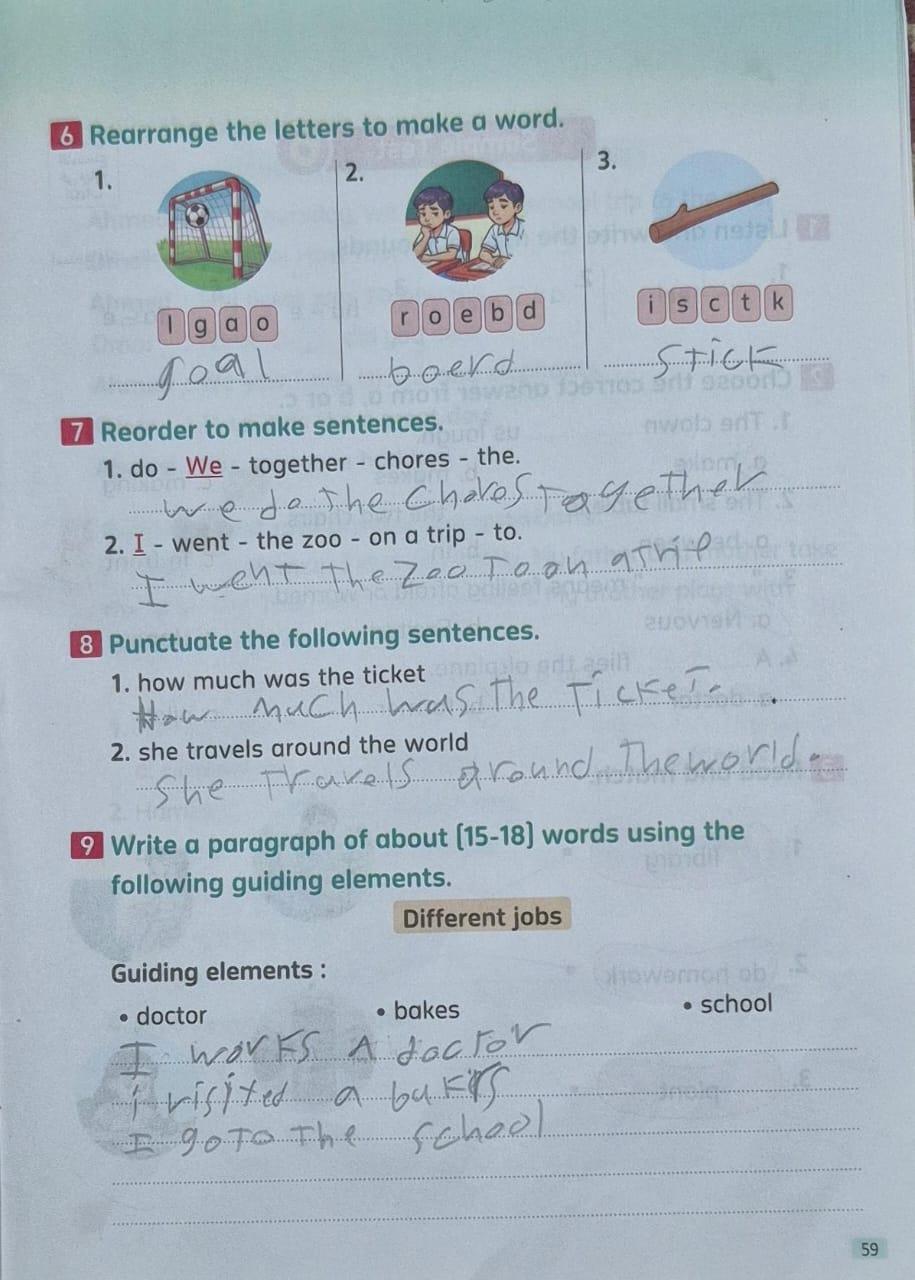 6 Rearrange the letters to make a word.
1. 2. 3.
l g a o r o e b d i s c t k
goal boerd stick
7 Reorder to make sentences.
1. do - We - together - chores - the.
we do the chores Together
2. I - went - the zoo - on a trip - to.
I went the zoo To on a trip
8 Punctuate the following sentences.
1. how much was the ticket
How much was The Ticket.
2. she travels around the world
She Travels around The world.
9 Write a paragraph of about (15-18) words using the
following guiding elements.
Different jobs
Guiding elements :
• doctor • bakes • school
I works A doctor
i visited a bakrs
I go To The school
59